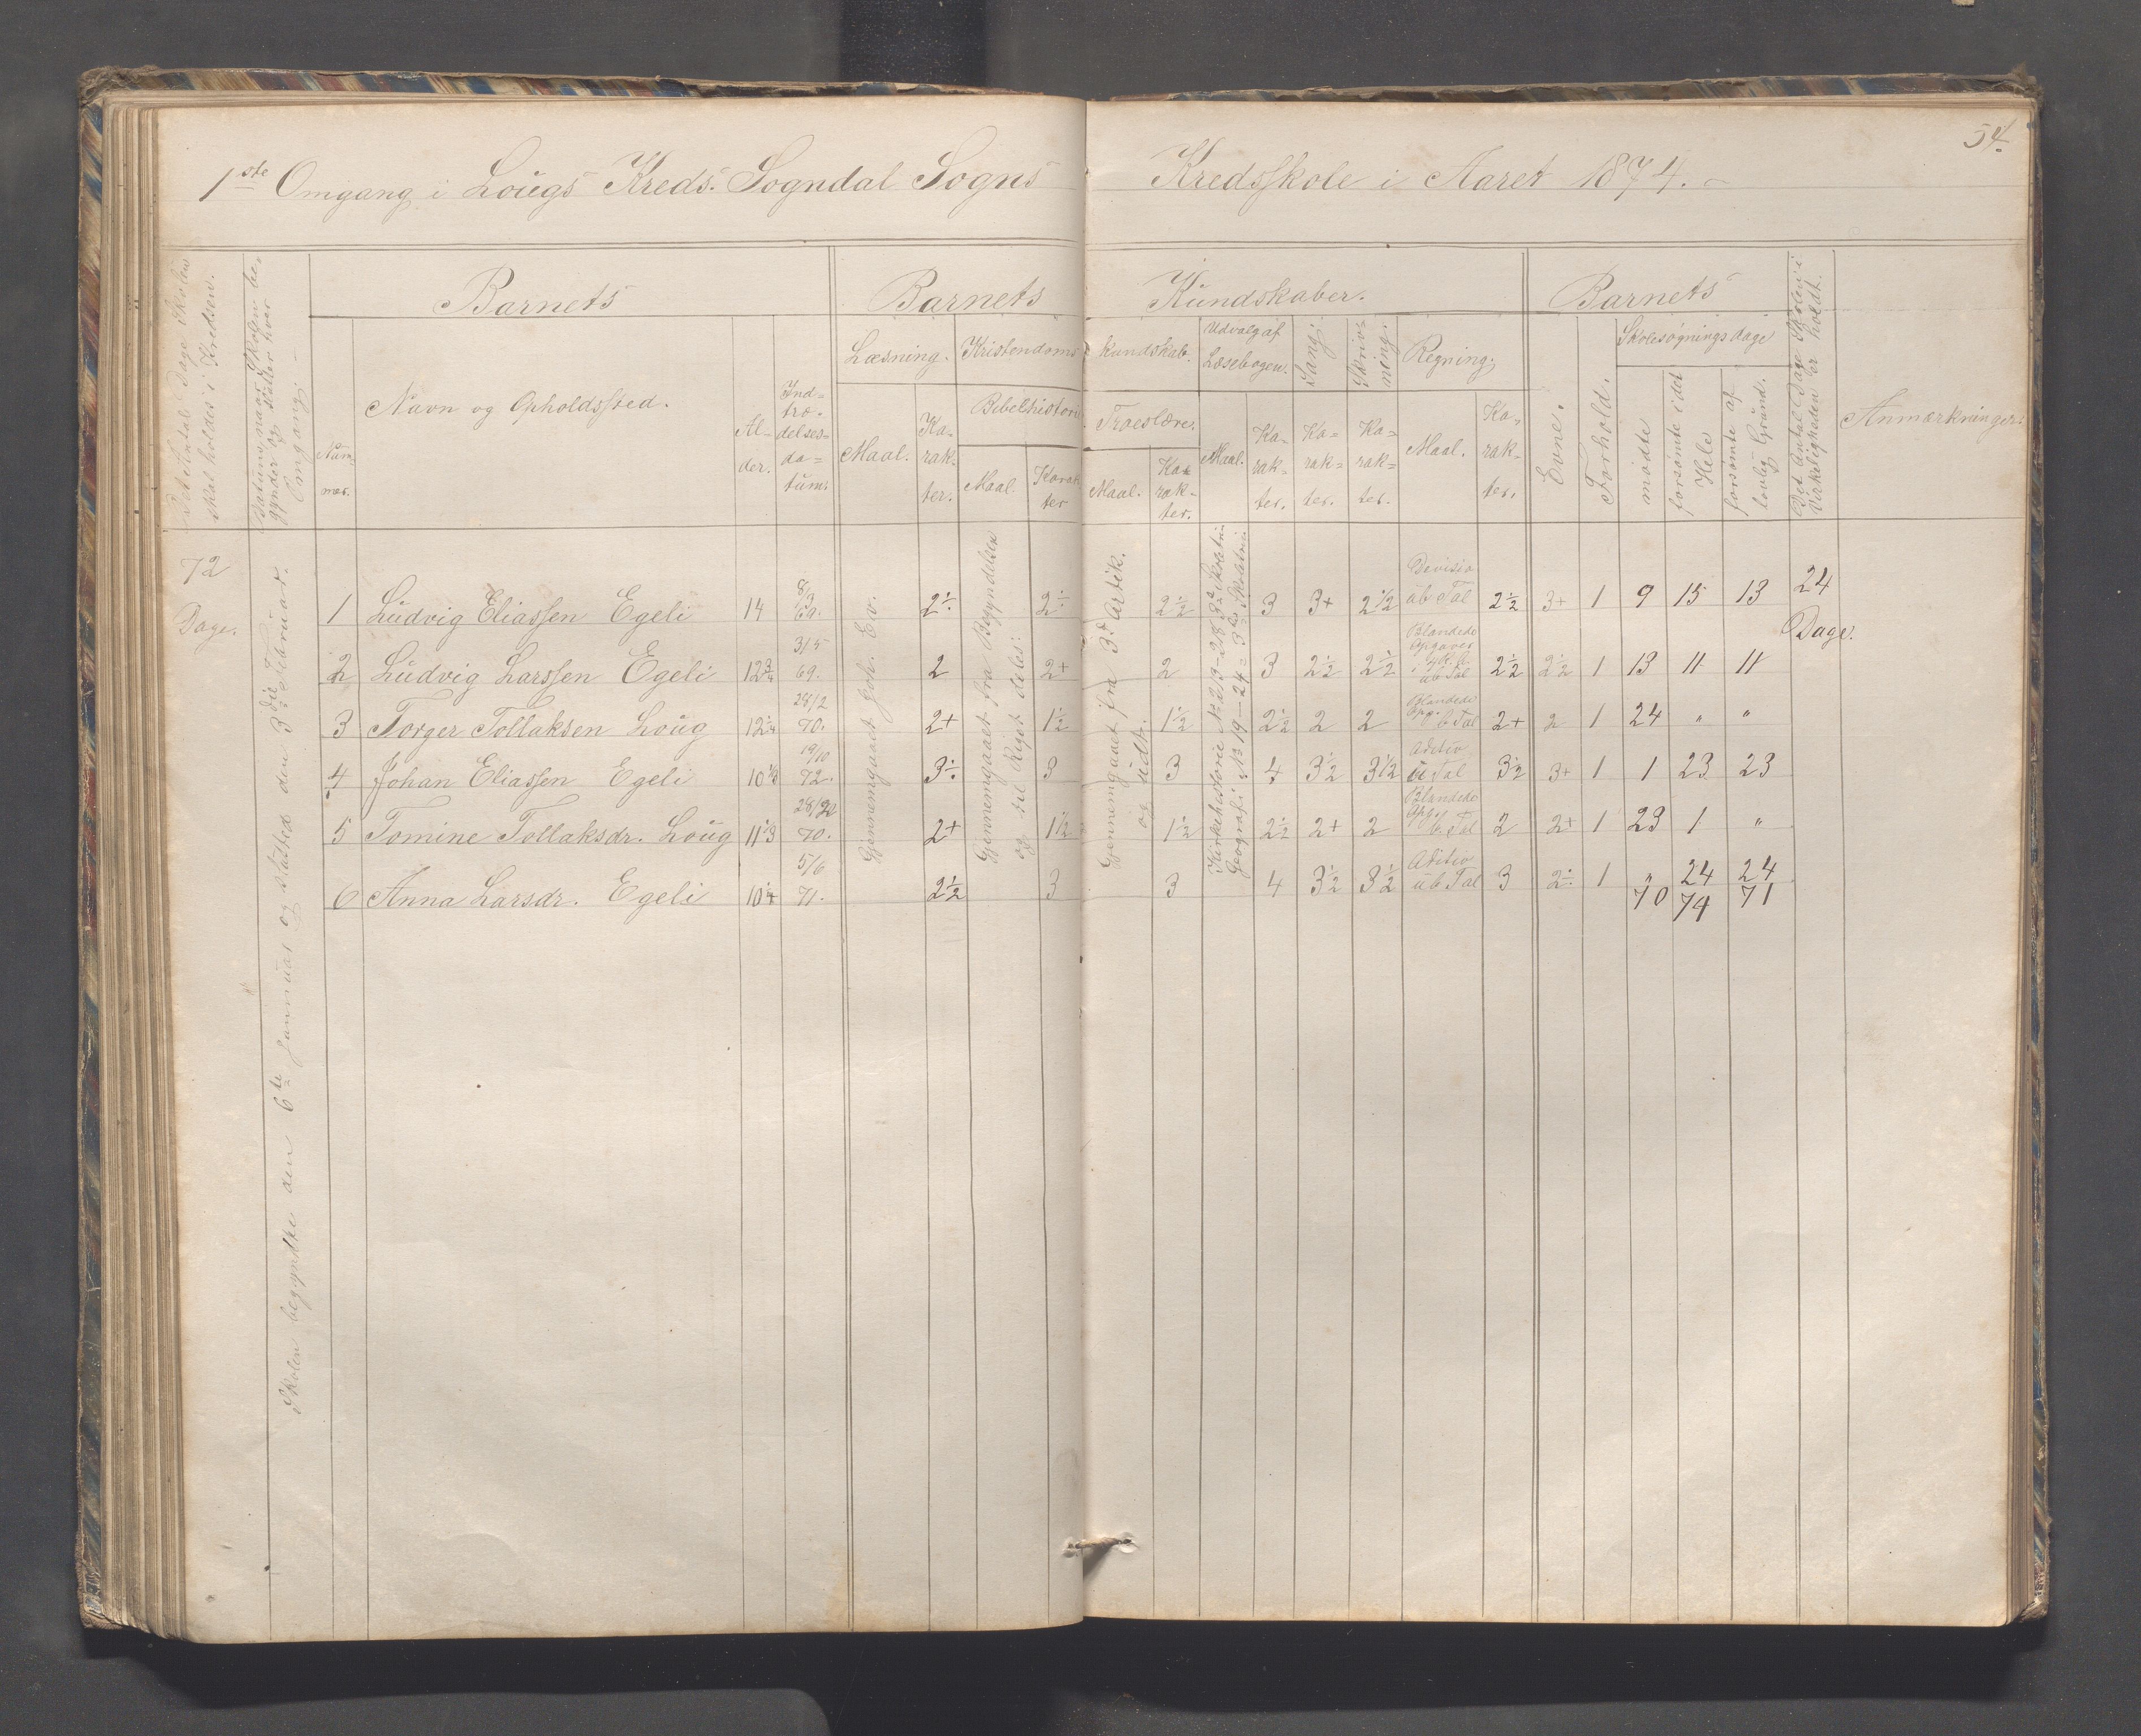 54.
1ste Omgang i Lougs Kreds. Sogndal Sogns Kredsskole i Aaret 1874.
Det Antal Dage Skolen skal holdes i Kredsen.
Datum, naar Skolen begynder og slutter hver Omgang.
Barnets
Nummer.
Navn og Opholdssted.
Alder.
Indtrædelsesdatum.
Barnets Kundskaber.
Læsning.
Maal.
Karakter.
Kristendomskundskab.
Bibelhistorie.
Maal.
Karakter
Troeslære.
Maal.
Karakter.
Udvalg af Læsebogen.
Maal.
Karakter.
Sang.
Karakter.
Skrivning.
Karakter.
Regning.
Maal.
Karakter.
Barnets
Evne.
Forhold.
Skolesøgningsdage
mødte
forsømte i det Hele
forsømte af lovlig Grund.
Det Antal Dage Skolen i Virkeligheden er holdt.
Anmærkninger.
72 Dage.
Skolen begyndte den 6te Januar og slutted den 3die Februar.
Gjennemgaaet Joh. Ev.
Gjennemgaaet fra Begyndelsen og til Riget deles:
Gjennemgaaet fra 3d Artik. og udt.
Kirkehistorie No 213-28 8de Skoletrin
Geografi No 19-24 = 3de Skoletrin
1 Ludvig Eliassen Egeli 14 8/3 69. 2÷ 2÷ 2½ 3 3+ 2½ Devisio ub Tal 2½ 3+ 1 9 15 13 24 Dage.
2 Ludvig Larssen Egeli 12¾ 3/5 69. 2 2+ 2 3 2½ 2½ Blandede Opgaver ub Tal 2½ 2½ 1 13 11 11
3 Torger Tollaksen Loug 12¼ 28/2 70. 2+ 1½ 1½ 2½ 2 2 Blandede Opg. b Tal 2+ 2 1 24 " "
4 Johan Eliassen Egeli 10⅓ 19/10 72. 3÷ 3 3 4 3½ 3½ Aditio u Tal 3½ 3+ 1 1 23 23
5 Tomine Tollaksdr. Loug 11⅓ 28/2 70. 2+ 1½ 1½ 2½ 2+ 2 Blandede Opg. b Tal 2 2+ 1 23 1 "
6 Anna Larsdr. Egeli 10¼ 5/6 71. 2½ 3 3 4 3½ 3½ Aditio ub Tal 3 2÷ 1 " 24 24
70 74 71